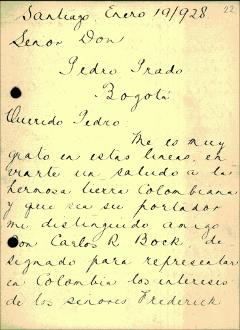 22
Santiago, Enero 19/928
Señor Don
Pedro Prado
Bogotá
Querido Pedro
Me es muy
grato en estas lineas, en
viarte un saludo a la
hermosa tierra Colombiana
y que sea su portador
mi distinguido amigo
Don Carlos R. Bock, de
signado para representar
en Colombia los intereses
de los señores Frederick